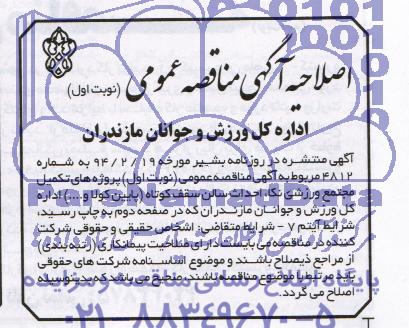 اصلاحیه آگهی مناقصه عمومی (نوبت اول)
اداره کل ورزش و جوانان مازندران
آگهی منتشره در روزنامه بشیر مورخه ۹۴/۲/۱۹ به شماره
۴۸۱۲ مربوط به آگهی مناقصه عمومی (نوبت اول) پروژه های تکمیل
مجتمع ورزشی نکا، احداث سالن سقف کوتاه (پایین کولا و...) اداره
کل ورزش و جوانان مازندران که در صفحه دوم به چاپ رسید،
شرایط آیتم ۷ - شرایط متقاضی: اشخاص حقیقی و حقوقی شرکت
کننده در مناقصه می بایست دارای صلاحیت پیمانکاری (رتبه بندی)
از مراجع ذیصلاح باشند و موضوع اساسنامه شرکت های حقوقی
باید مرتبط با موضوع مناقصه باشند، صحیح می باشد که بدینوسیله
اصلاح می گردد.
۰۲۱-۸۸۳۴۹۶۷۰-۵